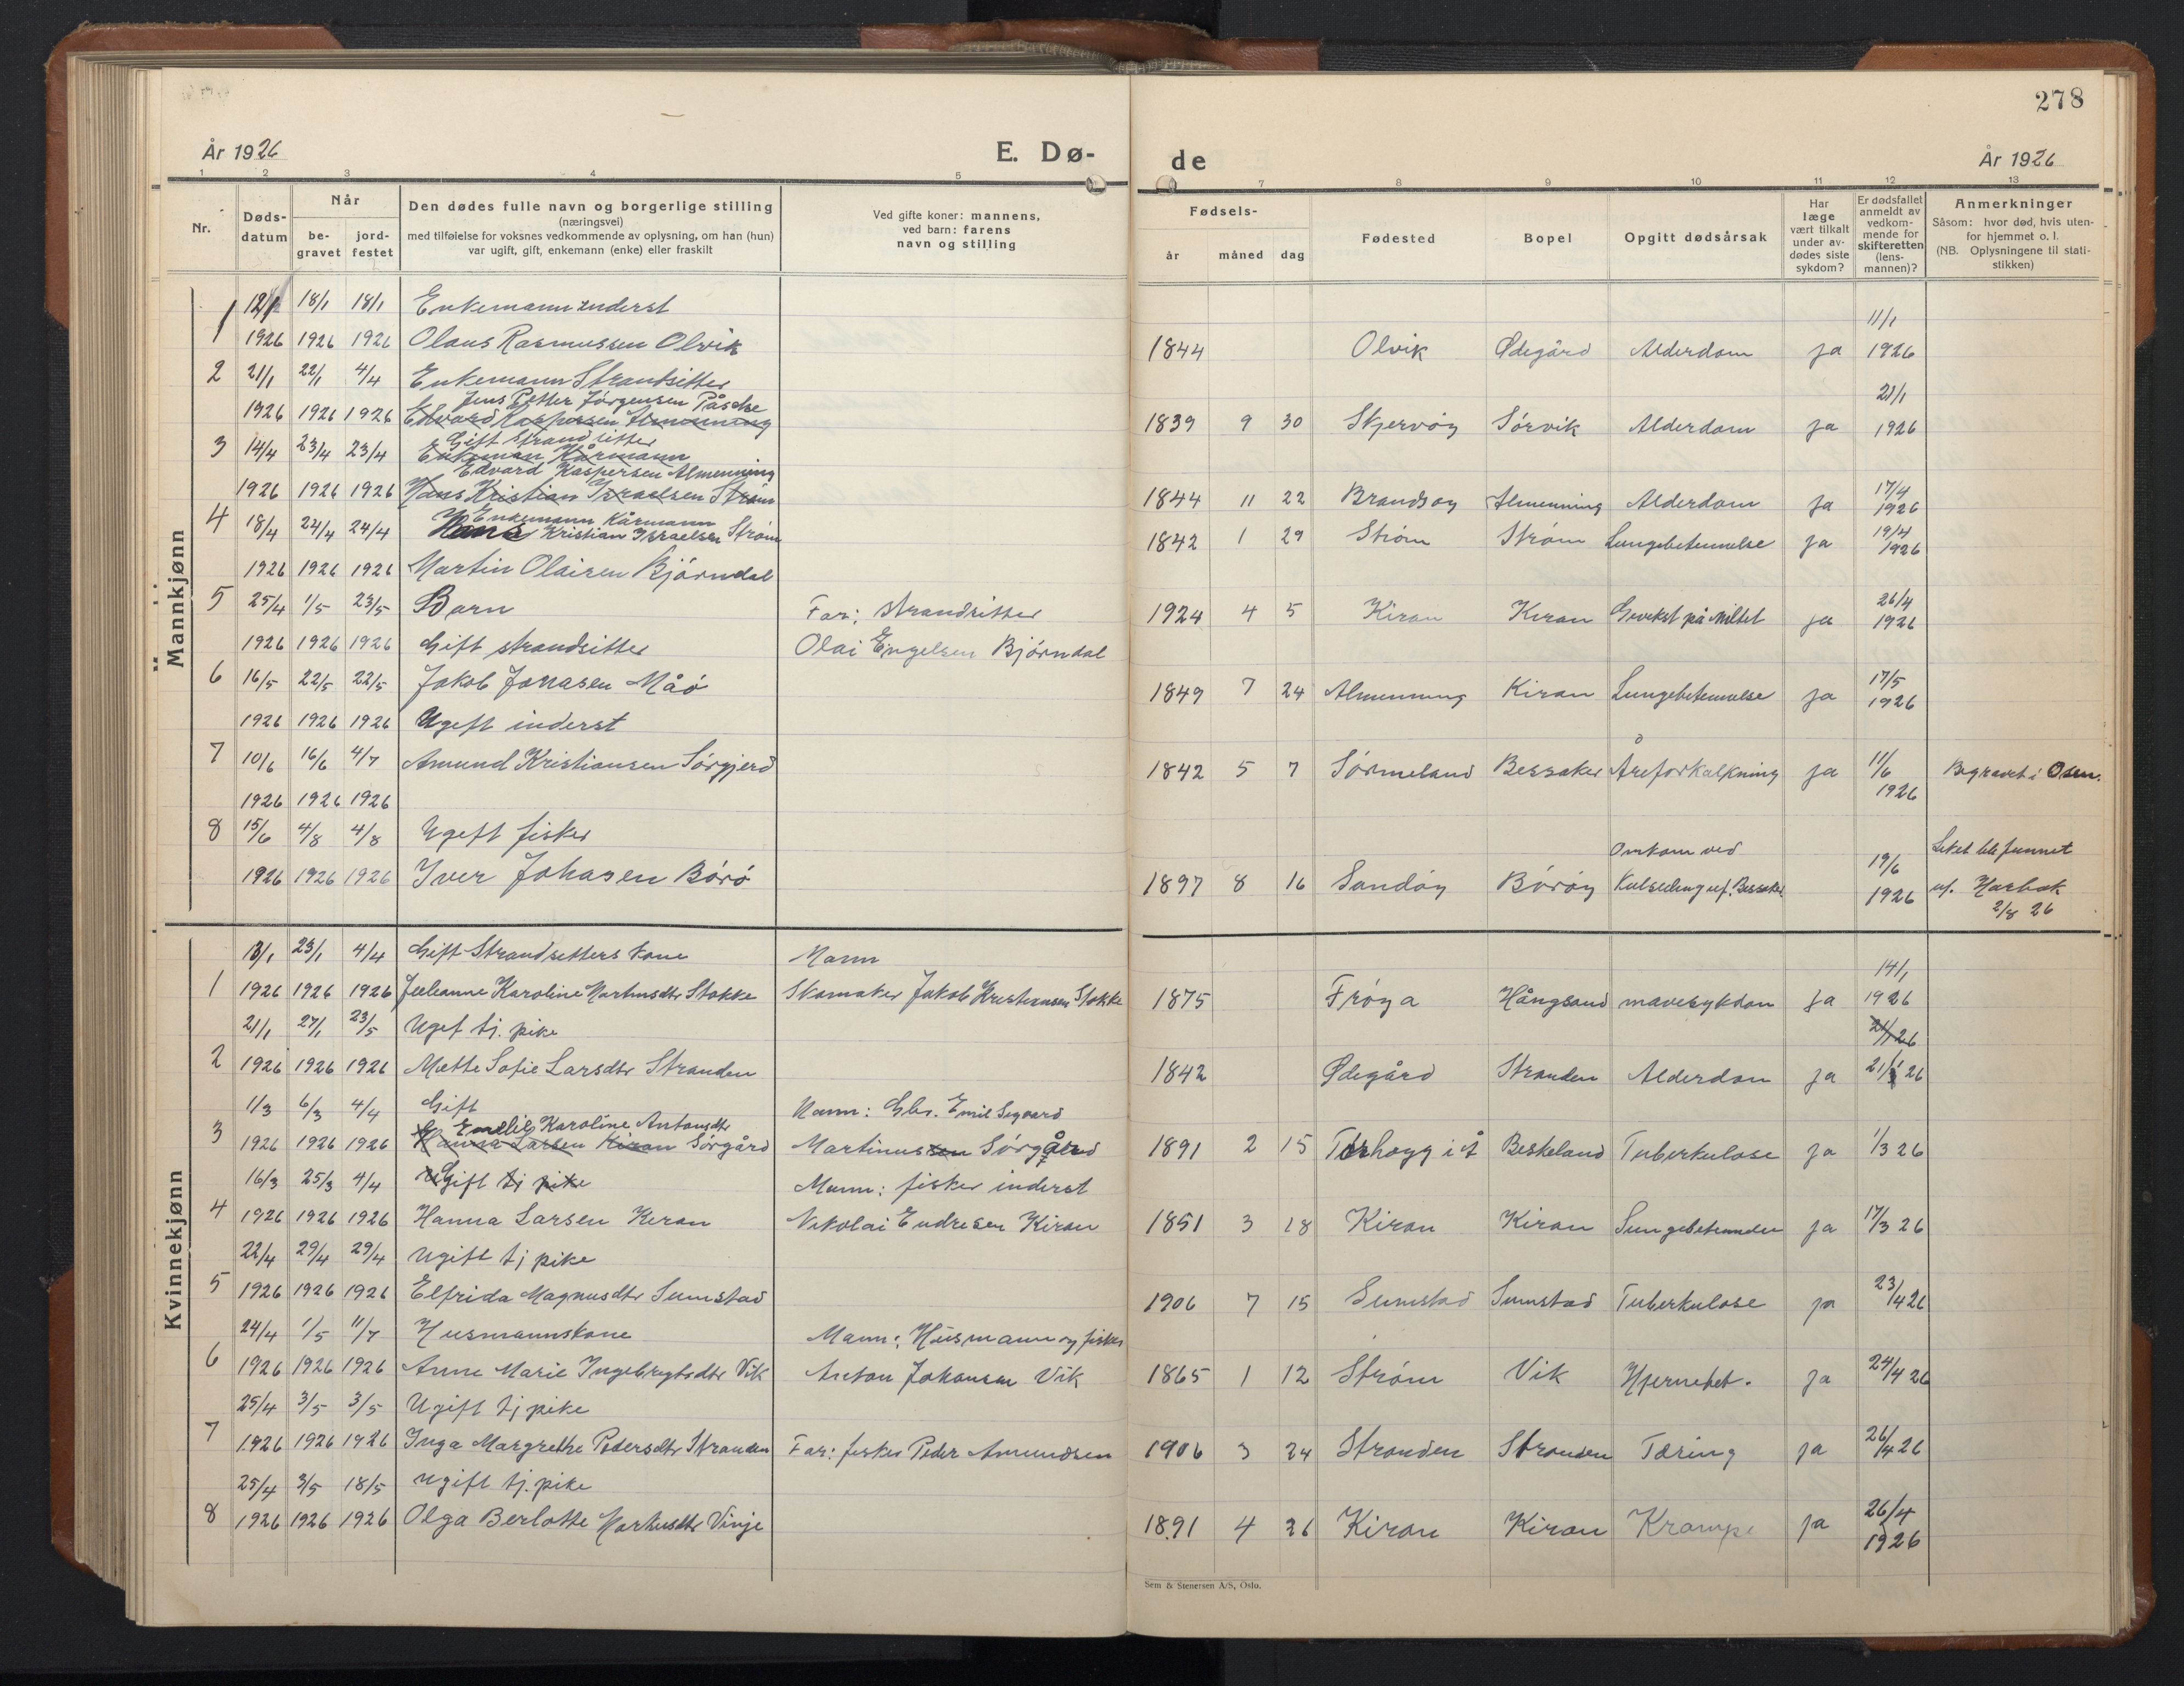 278
År 1926
E. Dø-
de
År 1926
1 2 3 4 5
7 8 9 10 11 12 13
Nr.
Døds-
datum
Når
be-
gravet
jord-
festet
Den dødes fulle navn og borgerlige stilling
(næringsvei)
med tilføielse for voksnes vedkommende av oplysning, om han (hun)
var ugift, gift, enkemann (enke) eller fraskilt
Ved gifte koner: mannens,
ved barn: farens
navn og stilling
Fødsels-
år måned dag
Fødested
Bopel
Opgitt dødsårsak
Har
læge
vært tilkalt
under av-
dødes siste
sykdom?
Er dødsfallet
anmeldt av
vedkom-
mende for
skifteretten
(lens-
mannen)?
Anmerkninger
Såsom: hvor død, hvis uten-
for hjemmet o. l.
(NB. Oplysningene til stati-
stikken)
Mannkjønn
12/1 18/1 18/1 Enkemann inderst 11/1
1 1926 1926 1926 Olaus Rasmussen Olvik 1844 Olvik Ødegård Alderdom ja 1926
2 21/1 22/1 4/4 Enkemann Strandsitter 21/1
Jens Petter Jørgensen Påsche
1926 1926 1926 Edvard Kaspersen Almenning 1839 9 30 Skjervøy Sørvik Alderdom ja 1926
Gift Strandsitter
3 14/4 23/4 23/4 Enkeman Kårmann
Edvard Kaspersen Almenning
1926 1926 1926 Hans Kristian Israelsen Strøm 1844 11 22 Brandsøy Almenning Alderdom ja 17/4 1926
Enkemann Kårmann
4 18/4 24/4 24/4 Hans Kristian Israelsen Strøm 1842 1 29 Strøm Strøm Lungebetennelse ja 19/4 1926
1926 1926 1926 Martin Olaisen Bjørndal
5 25/4 1/5 23/5 Barn Far: strandsitter 1924 4 5 Kiran Kiran på miltet ja 26/4 1926
1926 1926 1926 Gift strandsitter Olai Engelsen Bjørndal
6 16/5 22/5 22/5 Jakob Jonasen Måø 1849 7 24 Almenning Kiran Lungebetennelse ja 17/5 1926
1926 1926 1926 Ugift inderst
7 10/6 16/6 4/7 Amund Kristiansen Sørgjerd 1842 5 7 Sørmeland Bessaker Åreforkalkning ja 11/6 1926 Begravet i Osen.
1926 1926 1926
8 15/6 4/8 4/8 Ugift fisker Omkom ved Liket ble funnet
1926 1926 1926 Iver Johasen Børø 1897 8 16 Sandøy Børøy Kulseiling uf. Bessaker 19/6 1926 uf. Harbak
2/8 26
Kvinnekjønn
13/1 23/1 4/4 Gift Strandsitters kone Mann 14/1
1 1926 1926 1926 Juleanne Karoline Martinsdtr Stokke Skomaker Jakob Kristiansen Stokke 1875 Frøya Hångsand mavesykdom ja 1926
21/1 27/1 23/5 Ugift tj. pike 21/1 26
2 1926 1926 1926 Mette Sofie Larsdtr Stranden 1842 Ødegård Stranden Alderdom ja 21/1 26
1/3 6/3 4/4 Gift Mann: Gbr. Emil
Emelie Karoline Antonsdtr
3 1926 1926 1926 Hanna Larsen Kiran Sørgård Martinussen Sørgård 1891 2 15 Terhøyg i Å Beskeland Tuberkulose ja 1/3 26
16/3 25/3 4/4 Gift tj pike Mann: fisker inderst
4 1926 1926 1926 Hanna Larsen Kiran Nikolai Endresen Kiran 1851 3 18 Kiran Kiran Lungebetennelse ja 17/3 26
22/4 29/4 29/4 Ugift tj pike
5 1926 1926 1926 Elfrida Magnusdtr Sumstad 1906 7 15 Sumstad Sumstad Tuberkulose ja 23/4 26
24/4 1/5 11/7 Husmannskone Mann: Husmann og fisker
6 1926 1926 1926 Anne Marie Ingebrigtsdtr Vik Anton Johansen Vik 1865 1 12 Strøm Vik Hjernebet. ja 24/4 26
25/4 3/5 3/5 Ugift tj pike
7 1926 1926 1926 Inga Margrethe Pedersdtr Stranden Far: fisker Peder Amundsen 1906 3 24 Stranden Stranden Tæring ja 26/4 26
25/4 3/5 18/5 Ugift tj. pike
8 1926 1926 1926 Olga Berlotte Martinsdtr Vinje 1891 4 26 Kiran Kiran Krampe ja 26/4 1926
Sem & Stenersen A/S, Oslo.